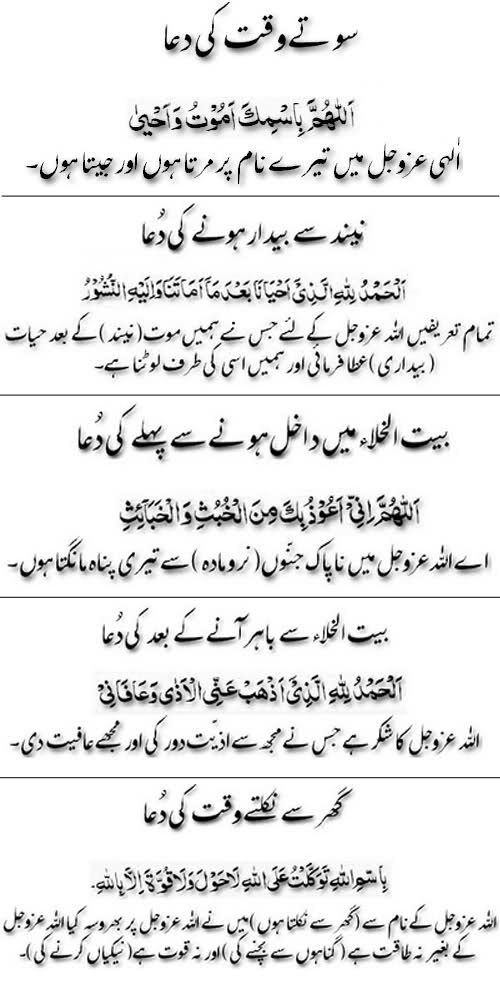 سوتے وقت کی دعا
اَللّٰهُمَّ بِاسْمِكَ اَمُوْتُ وَاَحْيٰى
اَلٰہی عزوجل میں تیرے نام پر مرتا ہوں اور جیتا ہوں۔
نیند سے بیدار ہونے کی دُعا
اَلْحَمْدُ لِلّٰهِ الَّذِىْ اَحْيَانَا بَعْدَ مَآ اَمَاتَنَا وَاِلَيْهِ النُّشُوْرُ
تمام تعریفیں اللہ عزوجل کے لئے جس نے ہمیں موت (نیند) کے بعد حیات
(بیداری) عطا فرمائی اور ہمیں اسی کی طرف لوٹنا ہے۔
بیت الخلاء میں داخل ہونے سے پہلے کی دُعا
اَللّٰهُمَّ اِنِّىْ اَعُوْذُ بِكَ مِنَ الْخُبُثِ وَالْخَبَآئِثِ
اے اللہ عزوجل میں ناپاک جنّوں (نر و مادہ) سے تیری پناہ مانگتا ہوں۔
بیت الخلاء سے باہر آنے کے بعد کی دُعا
اَلْحَمْدُ لِلّٰهِ الَّذِىْ اَذْهَبَ عَنِّى الْاَذٰى وَعَافَانِىْ
اللہ عزوجل کا شکر ہے جس نے مجھ سے اذیّت دور کی اور مجھے عافیت دی۔
گھر سے نکلتے وقت کی دُعا
بِاسْمِ اللّٰهِ تَوَكَّلْتُ عَلَى اللّٰهِ لَاحَوْلَ وَلَا قُوَّةَ اِلَّا بِاللّٰهِ۔
اللہ عزوجل کے نام سے (گھر سے نکلتا ہوں) میں نے اللہ عزوجل پر بھروسہ کیا اللہ عزوجل
کے بغیر نہ طاقت ہے (گناہوں سے بچنے کی) اور نہ قوت ہے (نیکیاں کرنے کی)۔